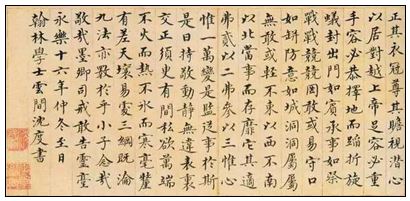 正其衣冠尊其瞻視潛心
以居對越上帝足容必重
手容必恭擇地而蹈折旋
蟻封出門如賓承事如祭
戰戰兢兢罔敢或易守口
如缾防意如城洞洞屬屬
無敢或輕不東以西不南
以北當事而存靡它其適
弗貳以二弗參以三惟心
惟一萬變是監從事於斯
是曰持敬動静無違表裏
交正須臾有間私欲萬端
不火而熱不氷而寒毫釐
有差天壤易處三綱旣淪
九法亦斁於乎小子念哉
敬哉墨卿司戒敢告靈臺
永樂十六年仲冬至日
翰林學士雲間沈度書